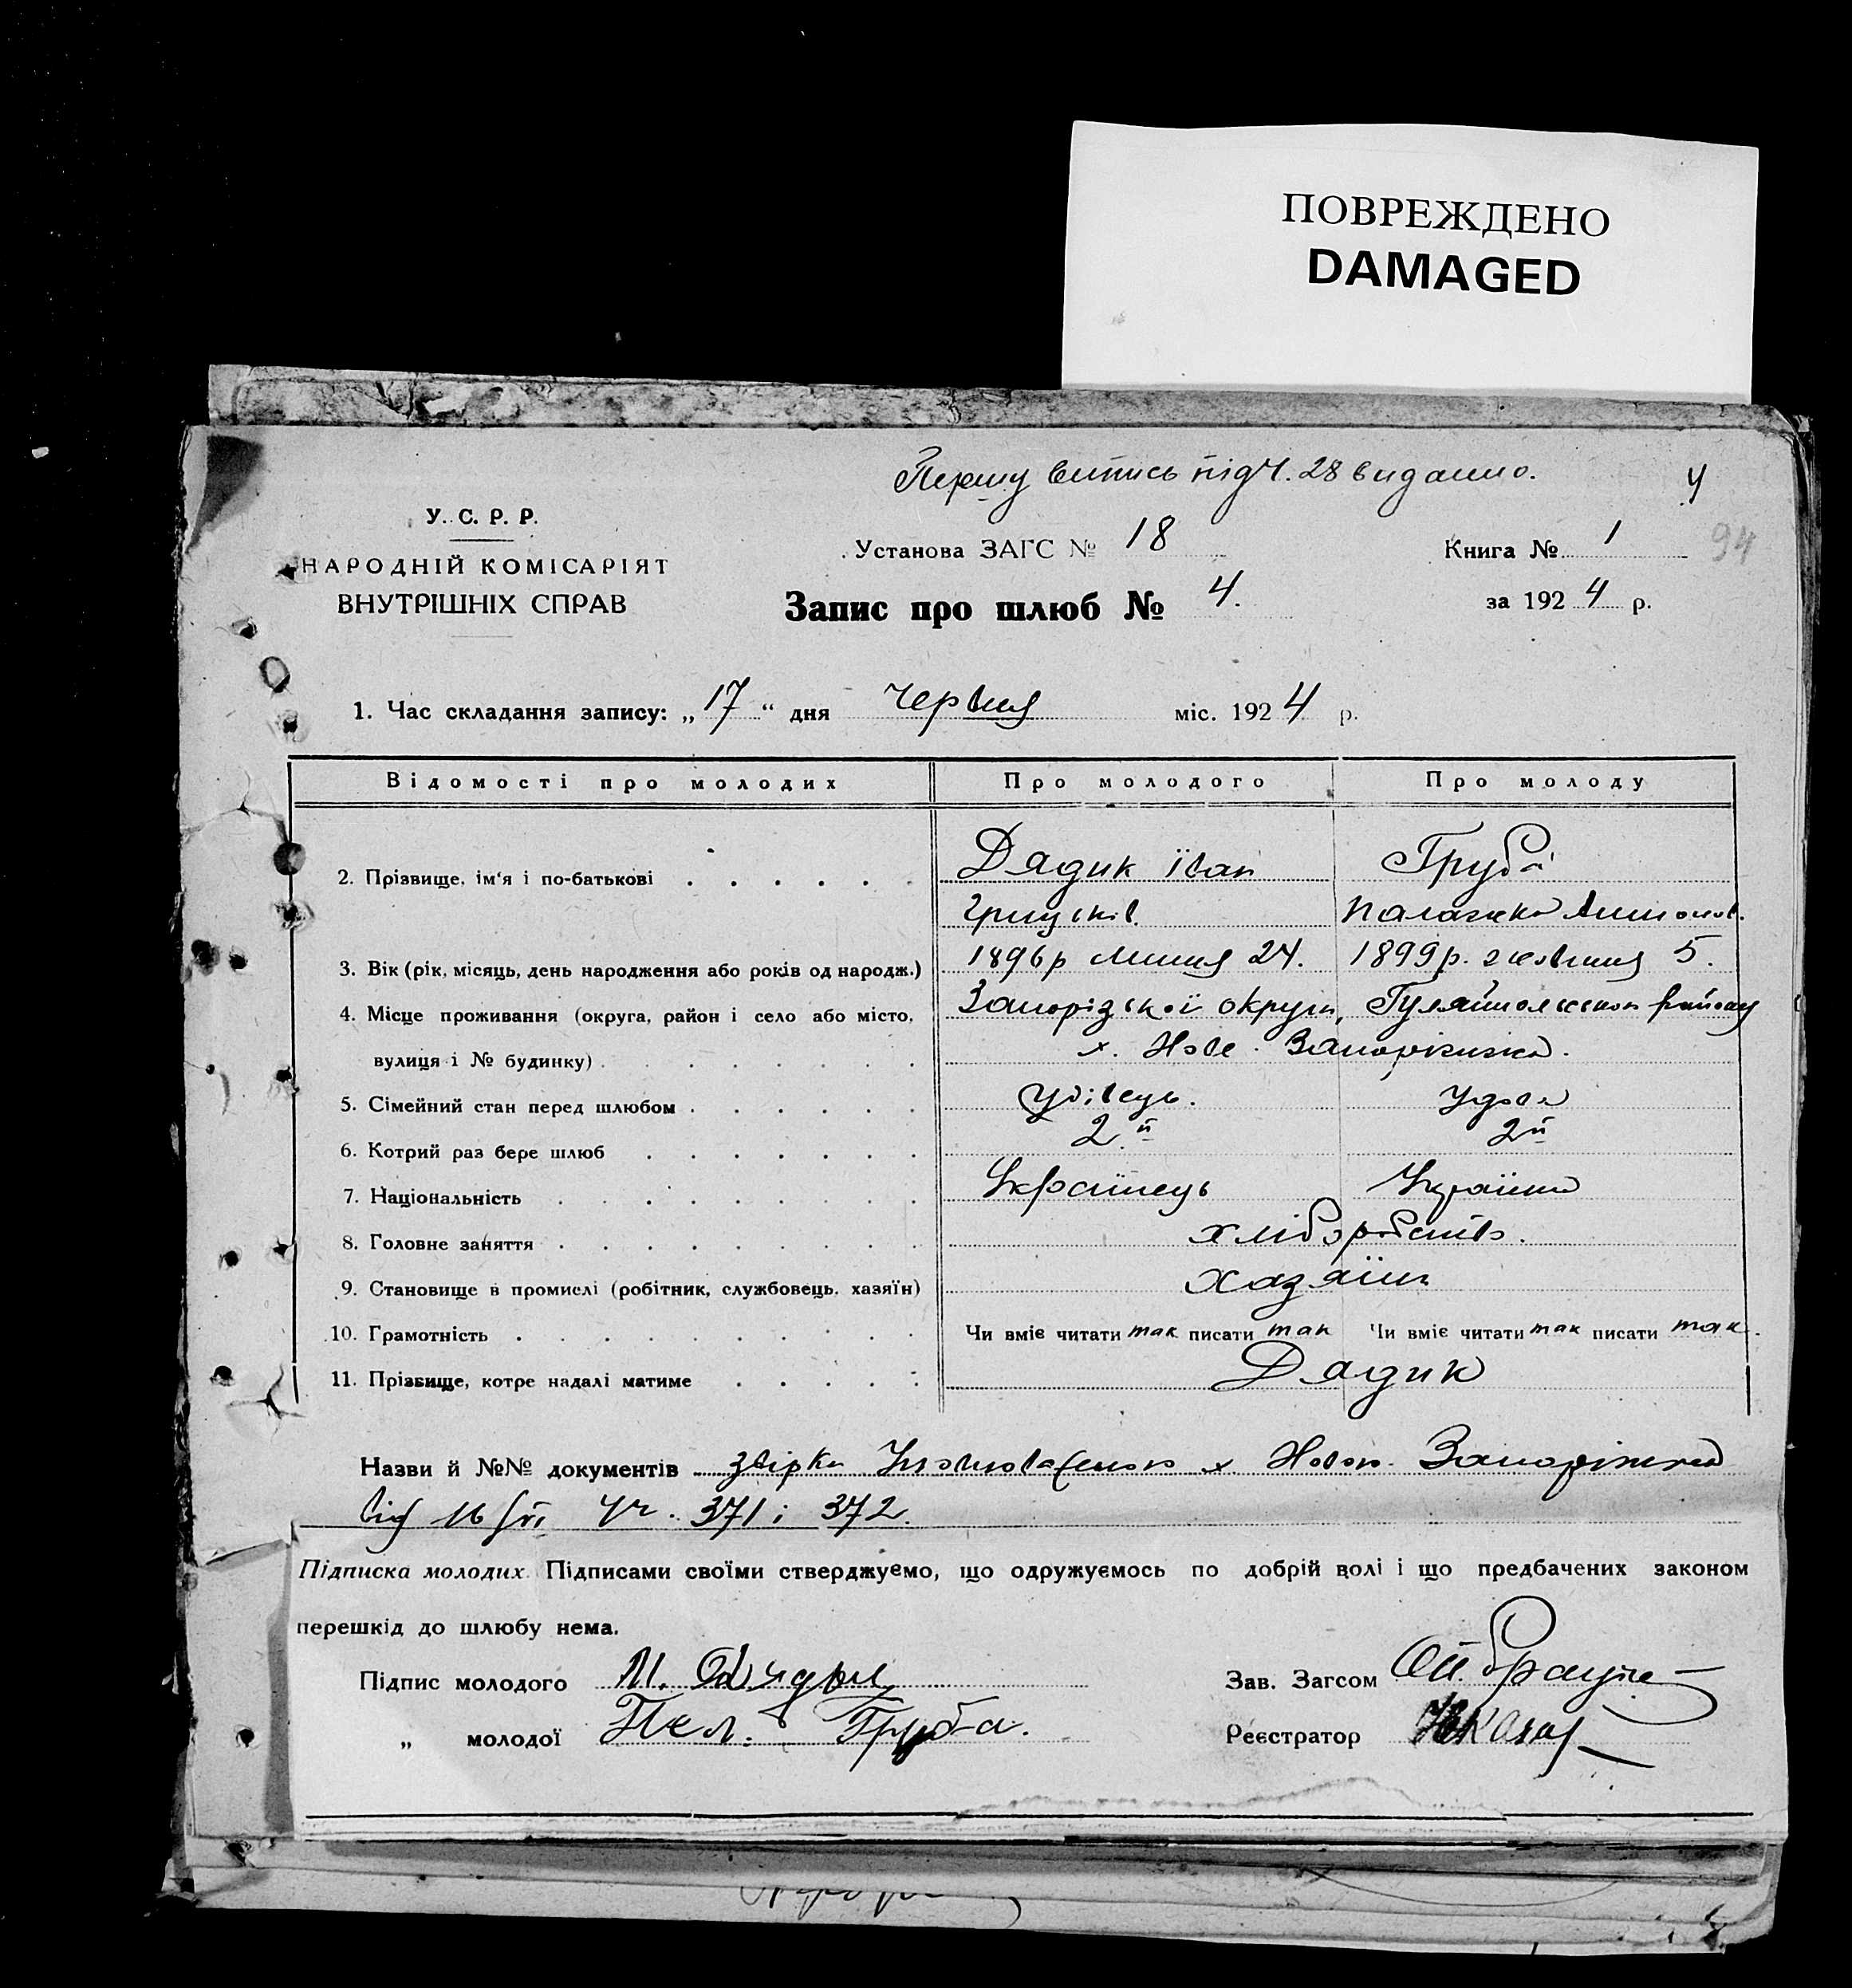 ПОВРЕЖДЕНО
DAMAGED
Першу випись під Ч. 28 видано.
У. С. Р. Р.
НАРОДНІЙ КОМІСАРІЯТ
ВНУТРІШНІХ СПРАВ
Установа ЗАГС № 18
Запис про шлюб № 4.
Книга № 1
94
за 1924 р.
1. Час складання запису: „17“ дня червня міс. 1924 р.
Відомості про молодих Про молодого Про молоду
2. Прізвище, ім'я і по-батькові Дядик Їван Груба
Грицьків. Палажка Антонов.
3. Вік (рік, місяць, день народження або років од народж.) 1896р липня 24. 1899р. жовтня 5.
4. Місце проживання (округа, район і село або місто, Запорізької округи, Гуляйпольського району
вулиця і № будинку) х. Нове-Запоріжжа.
5. Сімейний стан перед шлюбом удівець. удова
6. Котрий раз бере шлюб 2й 2й
7. Національність Українець Українка
8. Головне заняття хліборобство.
9. Становище в промислі (робітник, службовець, хазяїн) хазяїни
10. Грамотність Чи вміє читати так писати так Чи вміє читати так писати так.
11. Прізвище, котре надалі матиме Дядик
Назви й №№ документів х. Ново-Запоріжжа
від 16/VI Чч. 371 і 372.
Підписка молодих. Підписами своїми стверджуємо, що одружуємось по добрій волі і що предбачених законом
перешкід до шлюбу нема.
Підпис молодого
„ молодої Пел. Груба.
Зав. Загсом
Реєстратор